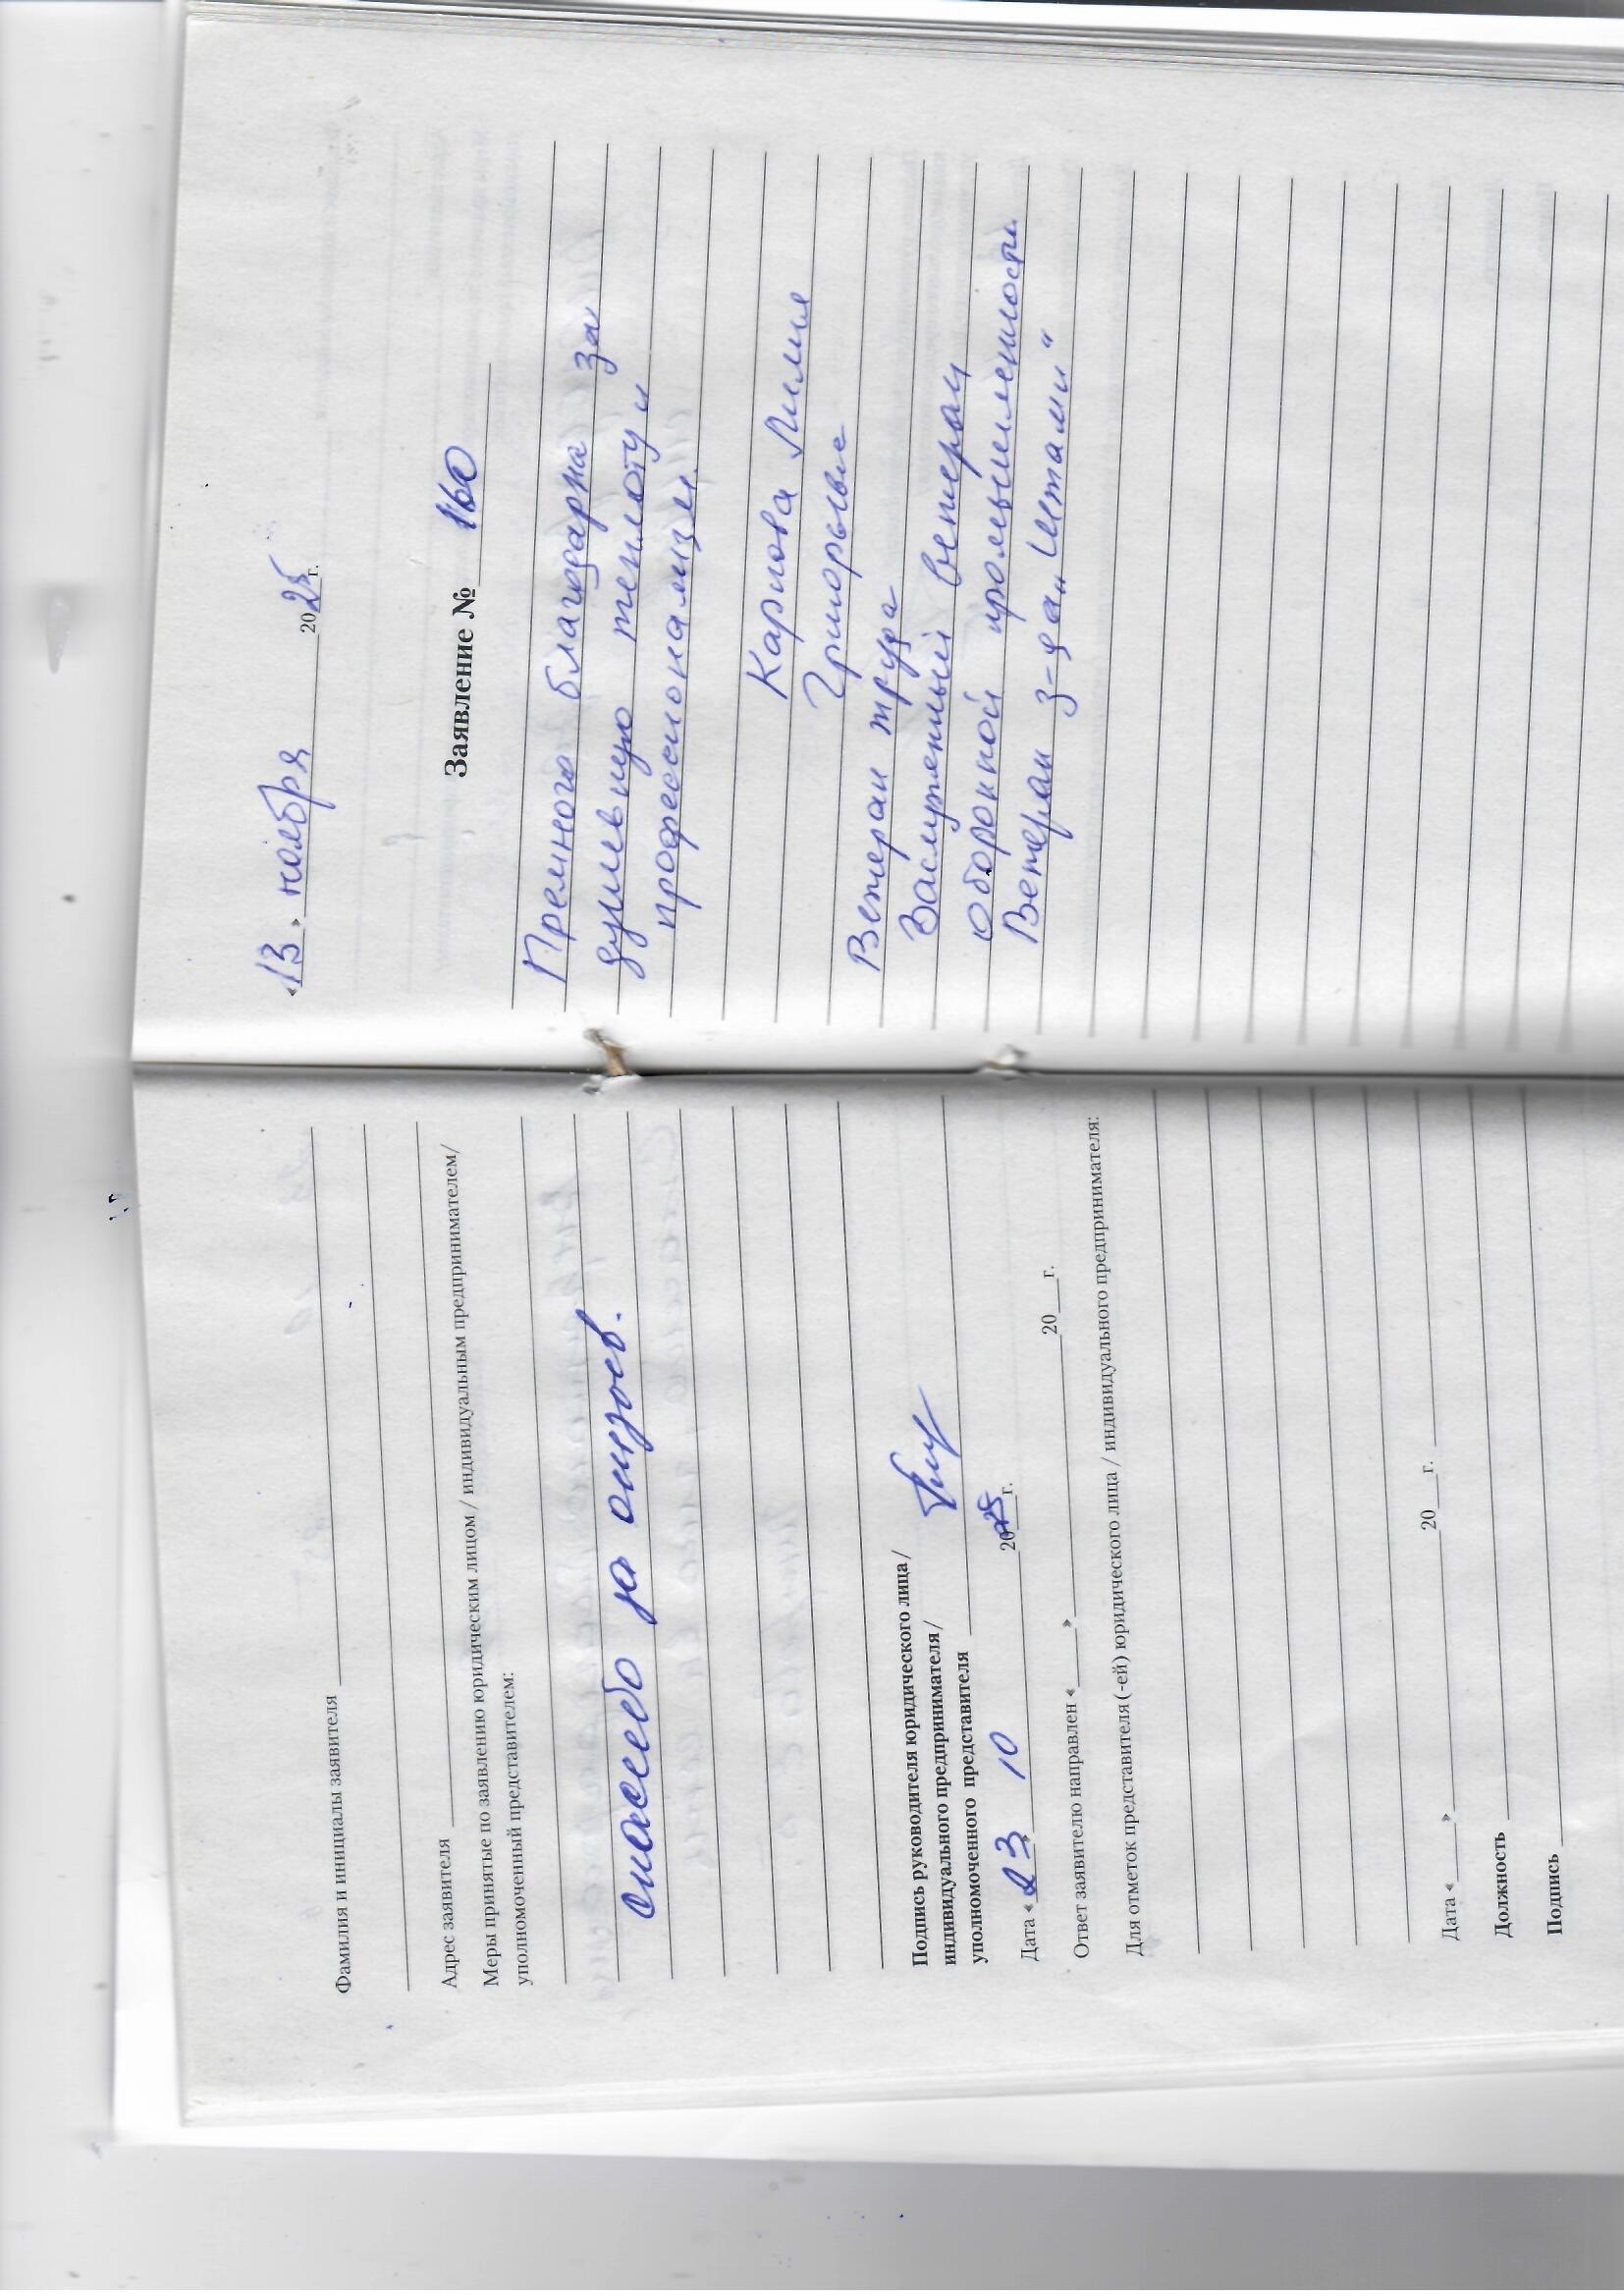 Фамилия и инициалы заявителя
Адрес заявителя
Меры принятые по заявлению юридическим лицом / индивидуальным предпринимателем/
уполномоченный представителем:
спасибо за отзыв.
Подпись руководителя юридического лица/
индивидуального предпринимателя/
уполномоченного представителя
Дата «23» 10 2025 г.
Ответ заявителю направлен «___» 20__ г.
Для отметок представителя (-ей) юридического лица / индивидуального предпринимателя:
Дата «___» 20__ г.
Должность
Подпись
«13» ноября 2025 г.
Заявление № 160
Премного благодарна за
душевную теплоту и
профессионализм.
Карпова Лилия
Ветеран труда
Заслуженный ветеран
оборонной промышленности
Ветеран з-да „Штамп“